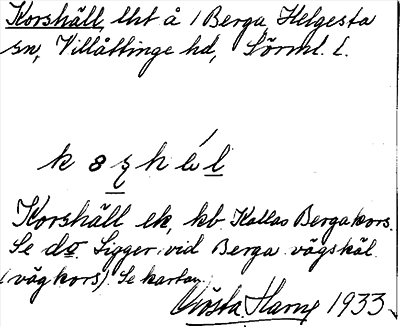 Korshäll, lht å 1 Berga Helgesta
sn, Villåttinge hd, Sörml. l.
Korshäll ek, kb Kallas Bergakors.
Se do Ligger vid Berga vägskäl
(vägkors) Se kartan
Gösta Harn 1933